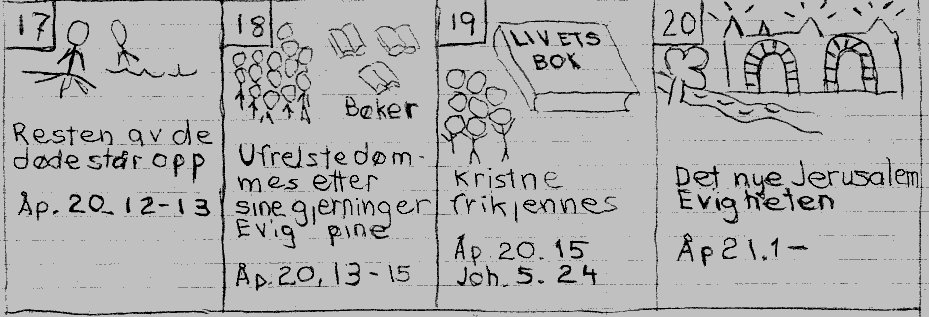 17
Resten av de
døde står opp
Åp. 20. 12-13
18
Bøker
Ufrelste døm-
mes etter
sine gjerninger
Evig pine
Åp. 20. 13-15
19
LIVETS
BOK
Kristne
frikjennes
Åp. 20. 15
Joh. 5. 24
20
Det nye Jerusalem
Evigheten
Åp 21.1-